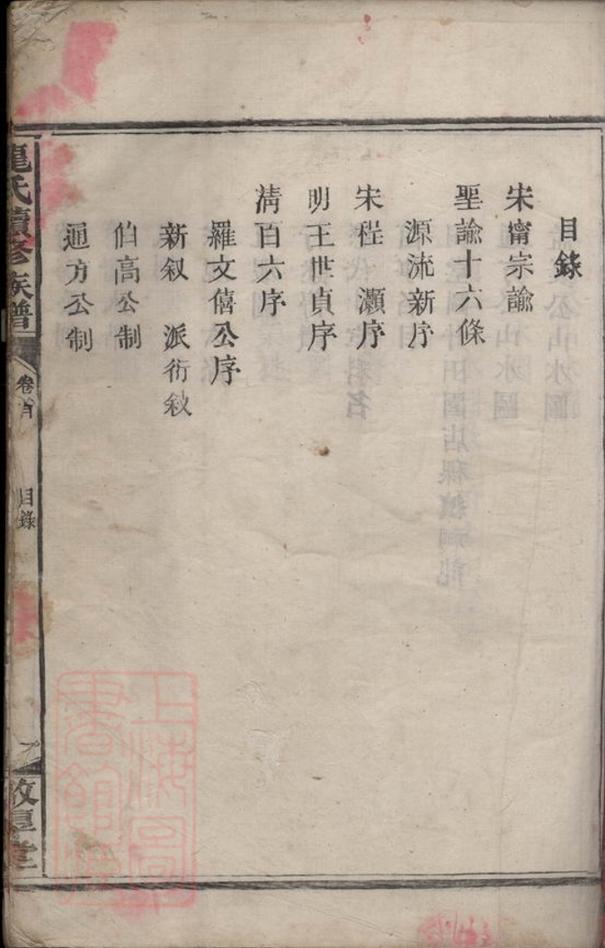 目錄
宋甯宗諭
聖諭十六條
源流新序
宋程　灝序
明王世貞序
清百六序
羅文僖公序
新叙　派衍敘
伯高公制
通方公制
氏續修族譜
卷首
目錄
上海圖書館藏